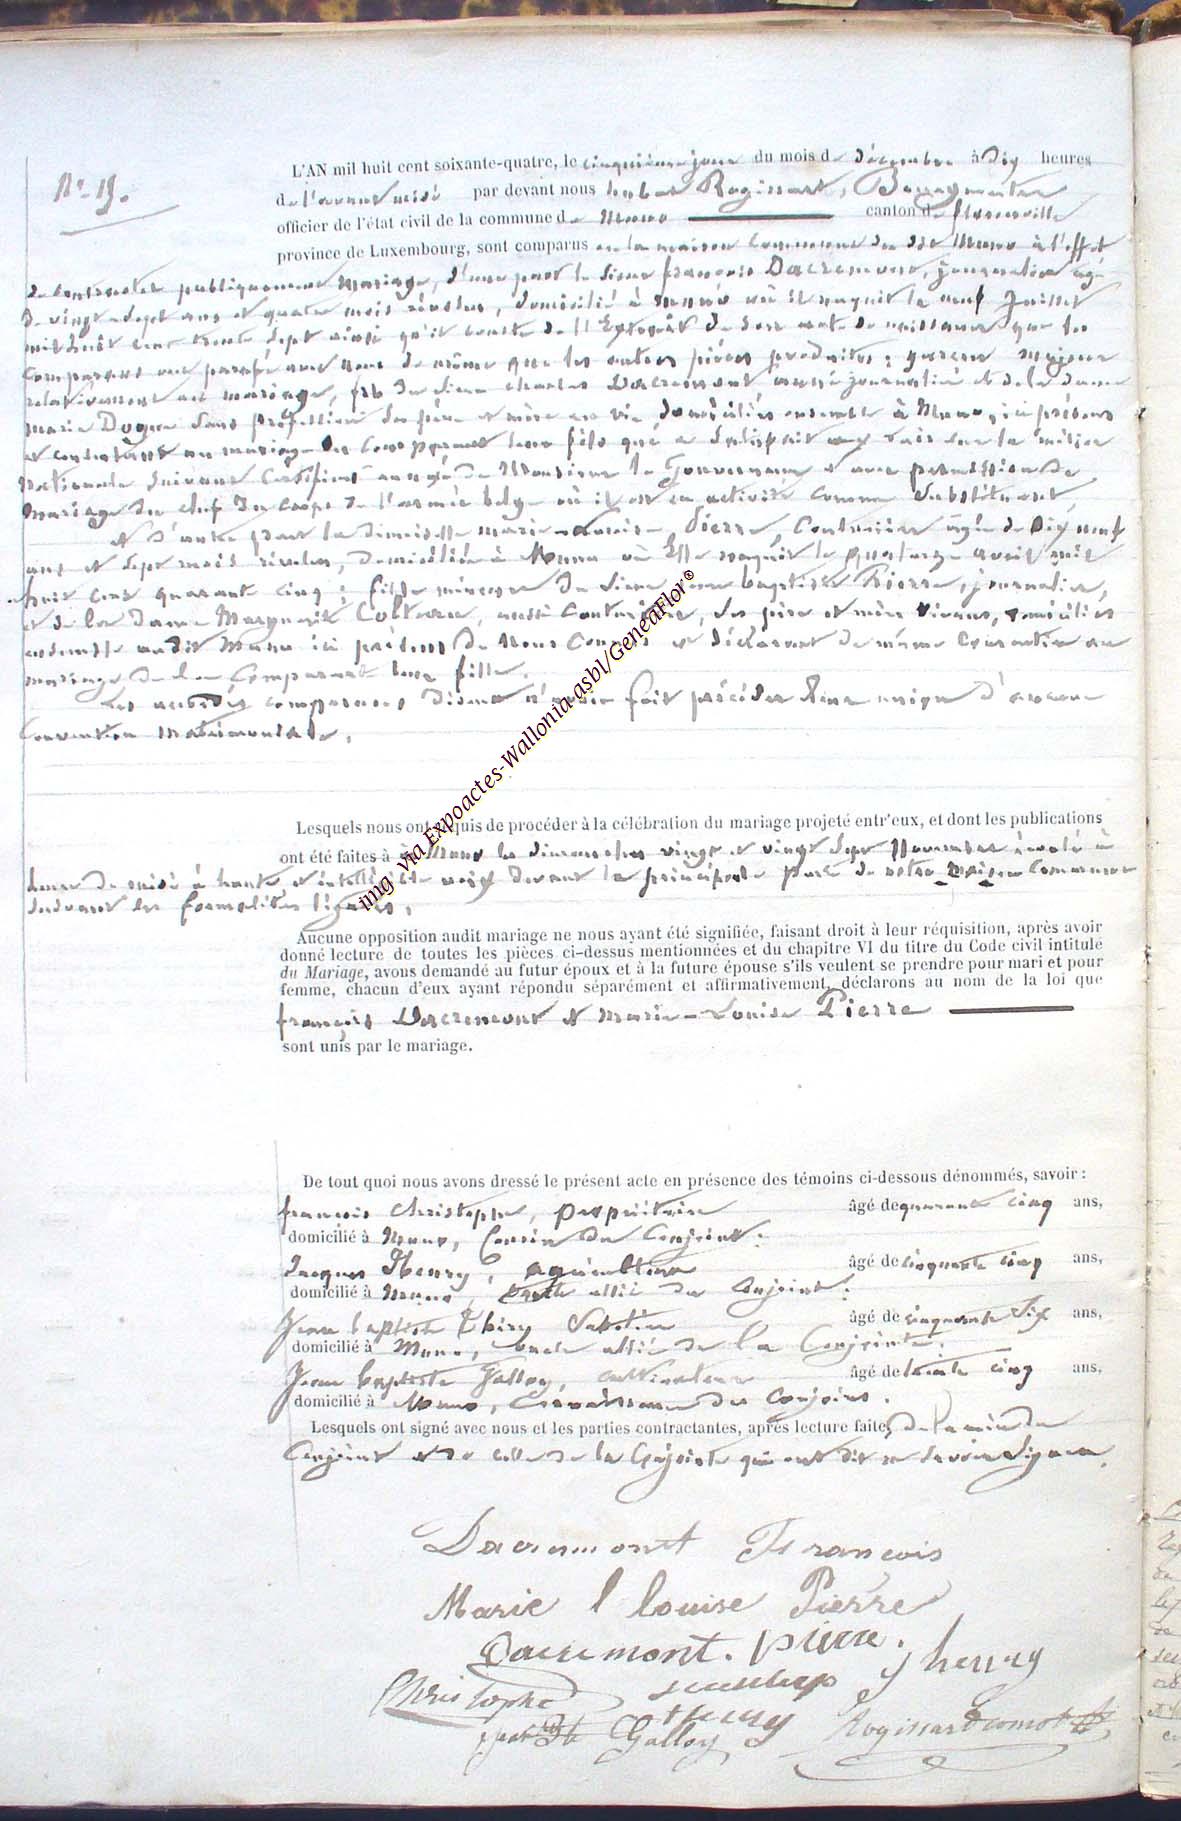 N° 19.
L'AN mil huit cent soixante-quatre, le cinquième jour du mois de décembre à Dix heures
de l'avant midi par devant nous Rogissart, Bourgmestre
officier de l'état civil de la commune de Muno canton de Florenville
province de Luxembourg, sont comparus en la maison Commune du dit Muno à l'effet
de contracter publiquement Mariage, d'une part le Sieur françois Dacremont, journalier agé
de vingt-sept ans et quatre mois révolus, domicilié à Muno où il naquit le neuf Juillet
mil huit cent trente sept ainsi qu'il conste de l'Extrait de son acte de naissance que les
comparans ont parafé avec nous de même que les autres pièces produites; garçon Majeur
relativement au mariage, fils du Sieur Charles Dacremont aussi journalier et de la dame
Marie Dogne Sans profession Ses père et mère en vie domiciliés ensemble à Muno, ici présens
et consentans au mariage du Comparant leur fils qui a Satisfait aux lois sur la milice
Nationale Suivant Certificat de Monsieur le Gouverneur et avec permission de
Mariage du chef du Corps de l'armée belge où il est en activité comme Substituant,
et d'autre part la Demoiselle marie-Louise Pierre, Couturière agée de Dix neuf
ans et Sept mois révolus, Domiciliée à Muno où Elle naquit le quatorze avril mil
huit cent quarante cinq; fille mineure du Sieur Jean baptiste Pierre, journalier,
et de la Dame Marguerite aussi Couturière, Ses père et mère Vivans, domiciliés
ensemble audit Muno ici présens de Nous Connus et déclarant de même Consentir au
mariage de la Comparante leur fille.
Les susdits comparans disent n'avoir fait précéder leur union d'aucune
Convention Matrimoniale.
Lesquels nous ont requis de procéder à la célébration du mariage projeté entr'eux, et dont les publications
ont été faites à Muno les dimanches vingt et vingt Sept Novembre écoulé à
heure de midi à haute et intelligible voix devant la principale porte de notre Maison Commune
Suivant les formalités légales.
Aucune opposition audit mariage ne nous ayant été signifiée, faisant droit à leur réquisition, après avoir
donné lecture de toutes les pièces ci-dessus mentionnées et du chapitre VI du titre du Code civil intitulé
du Mariage, avons demandé au futur époux et à la future épouse s'ils veulent se prendre pour mari et pour
femme, chacun d'eux ayant répondu séparément et affirmativement, déclarons au nom de la loi que
françois Dacremont et Marie-Louise Pierre
sont unis par le mariage.
De tout quoi nous avons dressé le présent acte en présence des témoins ci-dessous dénommés, savoir :
françois Christophe, propriétaire âgé de quarante cinq ans,
domicilié à Muno, Cousin du Conjoint.
Jacques Henry, agriculteur âgé de cinquante cinq ans,
domicilié à Muno, oncle allié du Conjoint.
Jean baptiste Thiry Sabotier âgé de cinquante Six ans,
domicilié à Muno, oncle allié de la Conjointe.
Jean baptiste Galloy, cultivateur âgé de trente cinq ans,
domicilié à Muno, Connaissance des conjoints.
Lesquels ont signé avec nous et les parties contractantes, après lecture faite, de la mère du
Conjoint et de celle de la Conjointe qui ont dit ne Savoir Signer.
Dacremont François
Marie Louise Pierre
Dacremont. pierre. J henry
Christophe
thiry
Galloy Rogissart
img via Expoactes-Wallonia asbl/GeneaFlor®